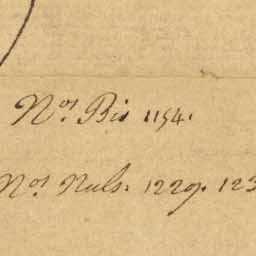 Nos. Bis 1154.
Nos. Nuls. 1229. 123